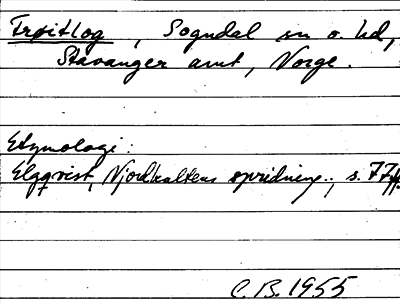 Trøitlog, Sogndal sn o. hd,
Stavanger amt, Norge.
Etymologi:
Elgqvist, Njordkultens spridning.., s. 77ff.
C.B. 1955